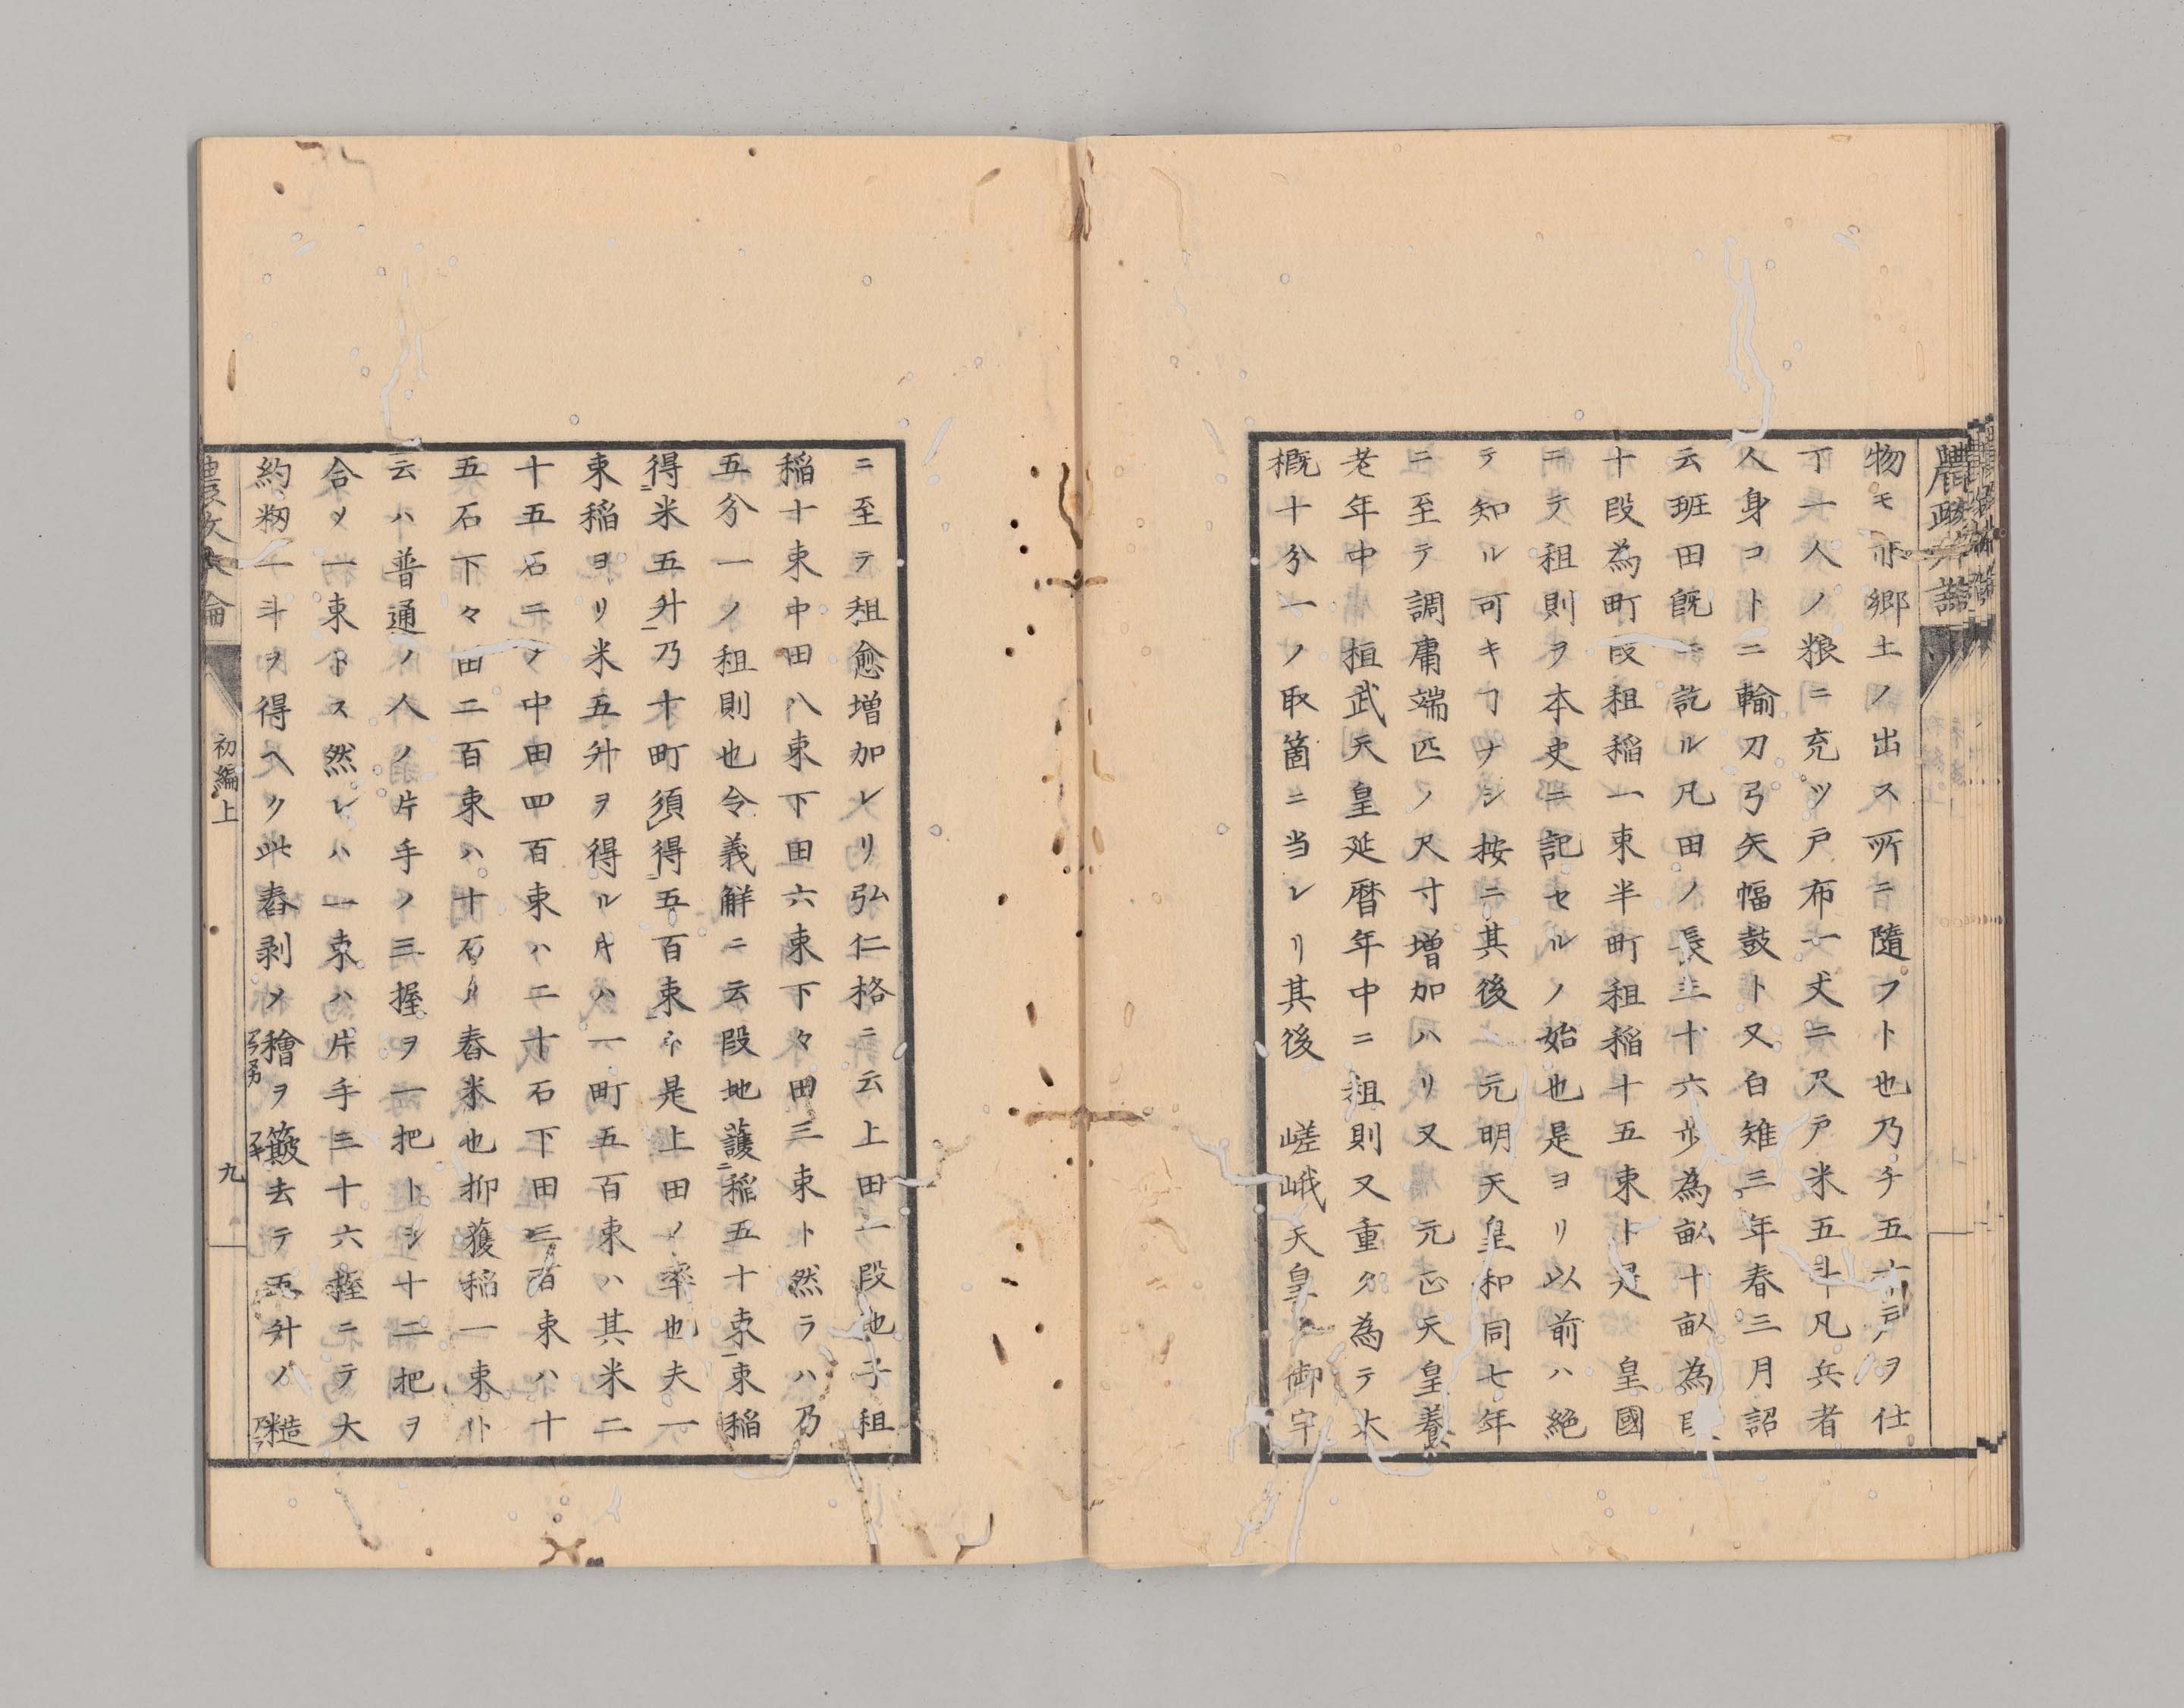 物モ亦郷土ノ出ス所ニ隨フト也乃チ五十戸ヲ仕
丁一人ノ粮ニ充ツ戸布一丈二尺戸米五斗凡兵者
人身コトニ輸刀弓矢幡鼓ト又白雉三年春三月詔
云班田既ニ訖ル凡田ノ長三十六歩為畝十畝為段
十段為町段租稲一束半町租稲十五束ト是 皇國
ニテ租則ヲ本史ニ記セルノ始也是ヨリ以前ハ絶
テ知ル可キヿナシ按ニ其後 元明天皇和同七年
ニ至テ調庸端匹ノ尺寸増加ハリ又 元正天皇養
老年中 桓武天皇延暦年中ニ 租則又重タ為テ大
概十分一ノ取箇ニ当レリ其後 嵯峨天皇ノ御宇
ニ至テ租愈増加レリ弘仁格ニ云上田一段地子租
稲十束中田八束下田六束下々田三束ト然ラハ乃
五分一ノ租則也令義解ニ云段地蒦ニ稲五十束一束稲
得ニ米五升一乃十町須レ得五百束ヿ是上田ノ率也夫一
束稲ヨリ米五升ヲ得ルキハ一町五百束ハ其米二
十五石ニノ中田四百束ハ二十石下田三百束ハ十
五石下々田二百束ハ十石ノ舂米也抑蒦稲一束ト
云ハ普通ノ人ノ片手ノ三握ヲ一把トシ十二把ヲ
合メ一束トス然レハ一束ハ片手三十六握ニテ大
約籾一斗ヲ得ヘク此舂剥メ穭ヲ簸去テ五升ノ糙
初編上
九